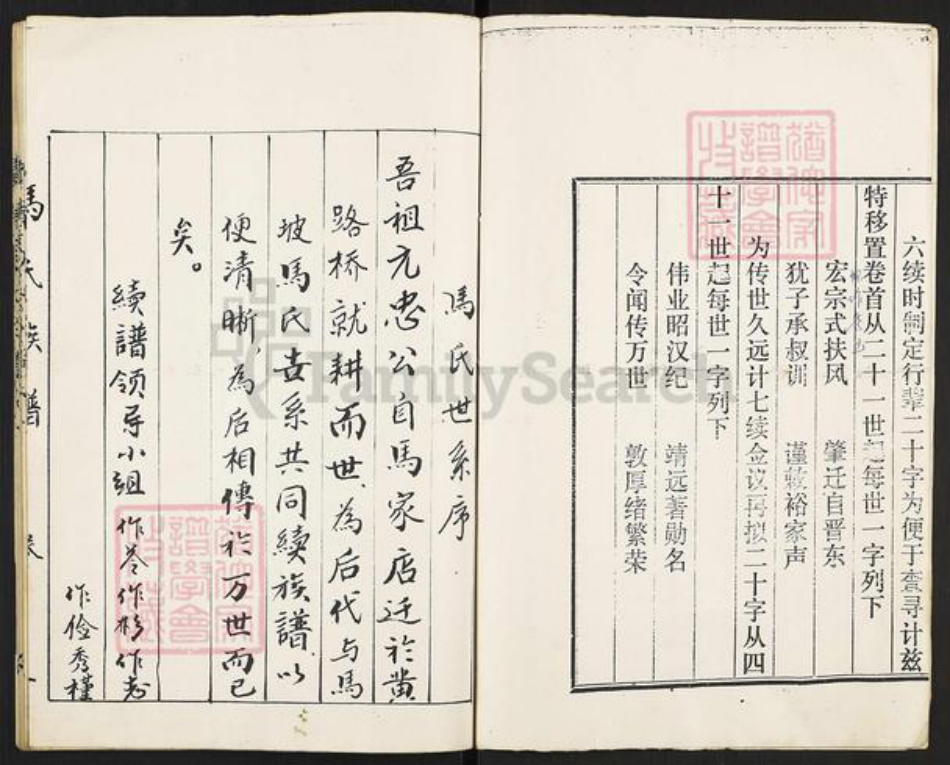 六续时制定行辈二十字为便于查寻计兹
特移置卷首从二十一世起每世一字列下
宏宗式扶风 肇迁自晋东
犹子承叔训 谨敕裕家声
为传世久远计七续佥议再拟二十字从四
十一世起每世一字列下
伟业昭汉纪 靖远著勋名
令闻传万世 敦厚绪繁荣
馬氏世系序
吾祖元忠公自馬家店迁於黄
路桥就耕而世、為后代与馬
坡馬氏世系共同續族譜、以
便清晰，為后相傳於万世而已
矣。
續譜领导小组 作苓作杉作志
作俭秀槿
馬氏族譜
FamilySearch